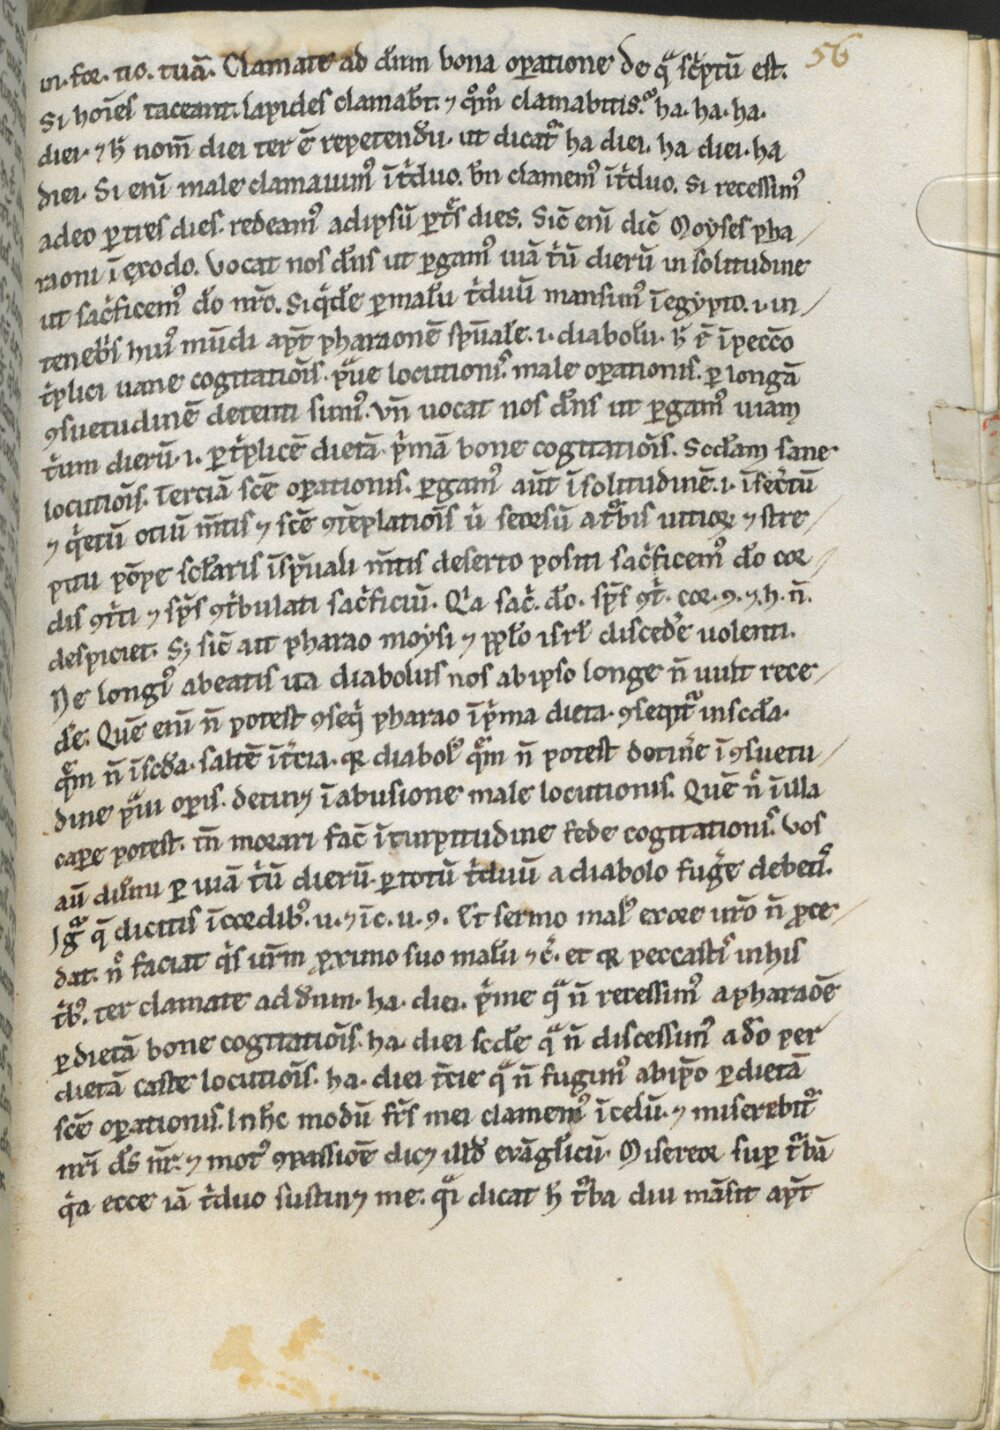 56
in. for. tio. tuā. Clamate ad dn̄m bona oꝑatione de qͣ sc̄ptū est.
Si hoīes taceant. lapides clamabt̄. ⁊ qͦmͦ clamabitis.ͣ ha. ha. ha.
diei. ⁊ h̄ nom̄ diei ter ē repetendū. ut dicatᷣ ha diei. ha diei. ha
diei. Si eni̅ male clamauimꝰ ītͥduo. bn̄ clamemꝰ ītͥduo. Si recessimꝰ
adeo ꝑ tres dies. redeamꝰ adipsū ꝑ tͤs dies. Sic̄ eni̅ dic̄ Moyses pha/
raoni ī exodo. Vocat nos dn̄s ut ꝑgamꝰ uiā tͥū dierū in solitudine
ut sacͥficemꝰ do̅ nr̄o. Siqͥdē ꝑ malū tͥduū mansimꝰ ī egypto. i. in/
tenebͥs huiꝰ mūdi apt̄ pharaonē sp̄uale̅. i. diabolū. h̄ ē̄ ī pecc̄o
tͥplici uane cogitatiōis. pͣue locutionis. male oꝑationis. ꝑ longā
ꝯsuetudinē detenti sumꝰ. Vn̄ uocat nos dn̄s ut ꝑgamꝰ uiam
tͥum dierū. i. ꝑ tͥplicē dietā. pͥmā bone cogitatiōis. Scd̄am sane
locutiōis. Terciā sc̄e oꝑationis. ꝑgamꝰ aūt ī solitudinē. i. ī secͤtū
⁊ qͥetū otiū m̄tis ⁊ sc̄e ꝯtēplatiōis ū seorsū a tͬbis uitioꝝ ⁊ stre/
pitu pōpe sc̄laris ī sp̄uali m̄tis deserto positi sacͥficemꝰ do̅ cor/
dis ꝯtͥti ⁊ sp̄s ꝯtͥbulati sacͥficiū. Qͥa sacͥ. do̅. sp̄s̄ ꝯtͥ. cor. ꝯ. ⁊. h. n̄.
despiciet. Sꝫ sic̄ ait pharao moysi ⁊ pp̄lo isrl̄ discedͤe uolenti.
Ne longiꝰ abeatis ita diabolus nos ab ipso longe n̄ uult rece/
de̅. Quē eni̅ n̄ potest ꝯseqͥ pharao ī pͥma dieta. ꝯsequitᷣ in scd̄a.
qͣm n̄ ī scd̄a. saltē ī tͤcia. qꝛ diabolꝰ qͣm n̄ potest detinͤe ī ꝯsuetu/
dine pͣui oꝑis. detinꝫ ī abusione male locutionis. Quē nͦ ī illa
caꝑe potest. tn̄ morari fac̄ ī turpitudine fede cogitationis. Vos
aū dil̄mi ꝑ uiā tͥū dierū. ꝑ totū tͥduū a diabolo fugͤe debetis.
Igͣ q̄ dicitis ī cordibꝰ. u. ⁊ ī c. u. ꝯ. Et sermo malꝰ ex ore ur̄o n̄ ꝓce/
dat. nͦ faciat qͥs ur̄m ꝓximo suo malū ⁊ c̄. et qꝛ peccastis in his
tͥbꝰ. ter clamate ad dn̄m. ha. diei. pͥme qͣ n̄ recessimꝰ a pharaōe
ꝑ dietā bone cogitatiōis. ha. diei scd̄e qͣ n̄ discessimꝰ ad̄o per
dietā caste locutiōis. ha. diei tͤcie qͣ n̄ fugimꝰ ab ip̄o ꝑ dietā
sc̄e oꝑationis. In hc̄ modū fr̄s mei clamemꝰ ī celū. ⁊ miserebitᷣ
nr̄i ds̄ nr̄. ⁊ motꝰ ꝯpassiōe dicꝫ illd̄ evāgl̄icū. Misereor suꝑ tͬbā
qͥa ecce iā tͥduo sustinꝫ me. qͣi dicat h̄ tͬba diu māsit apt̄